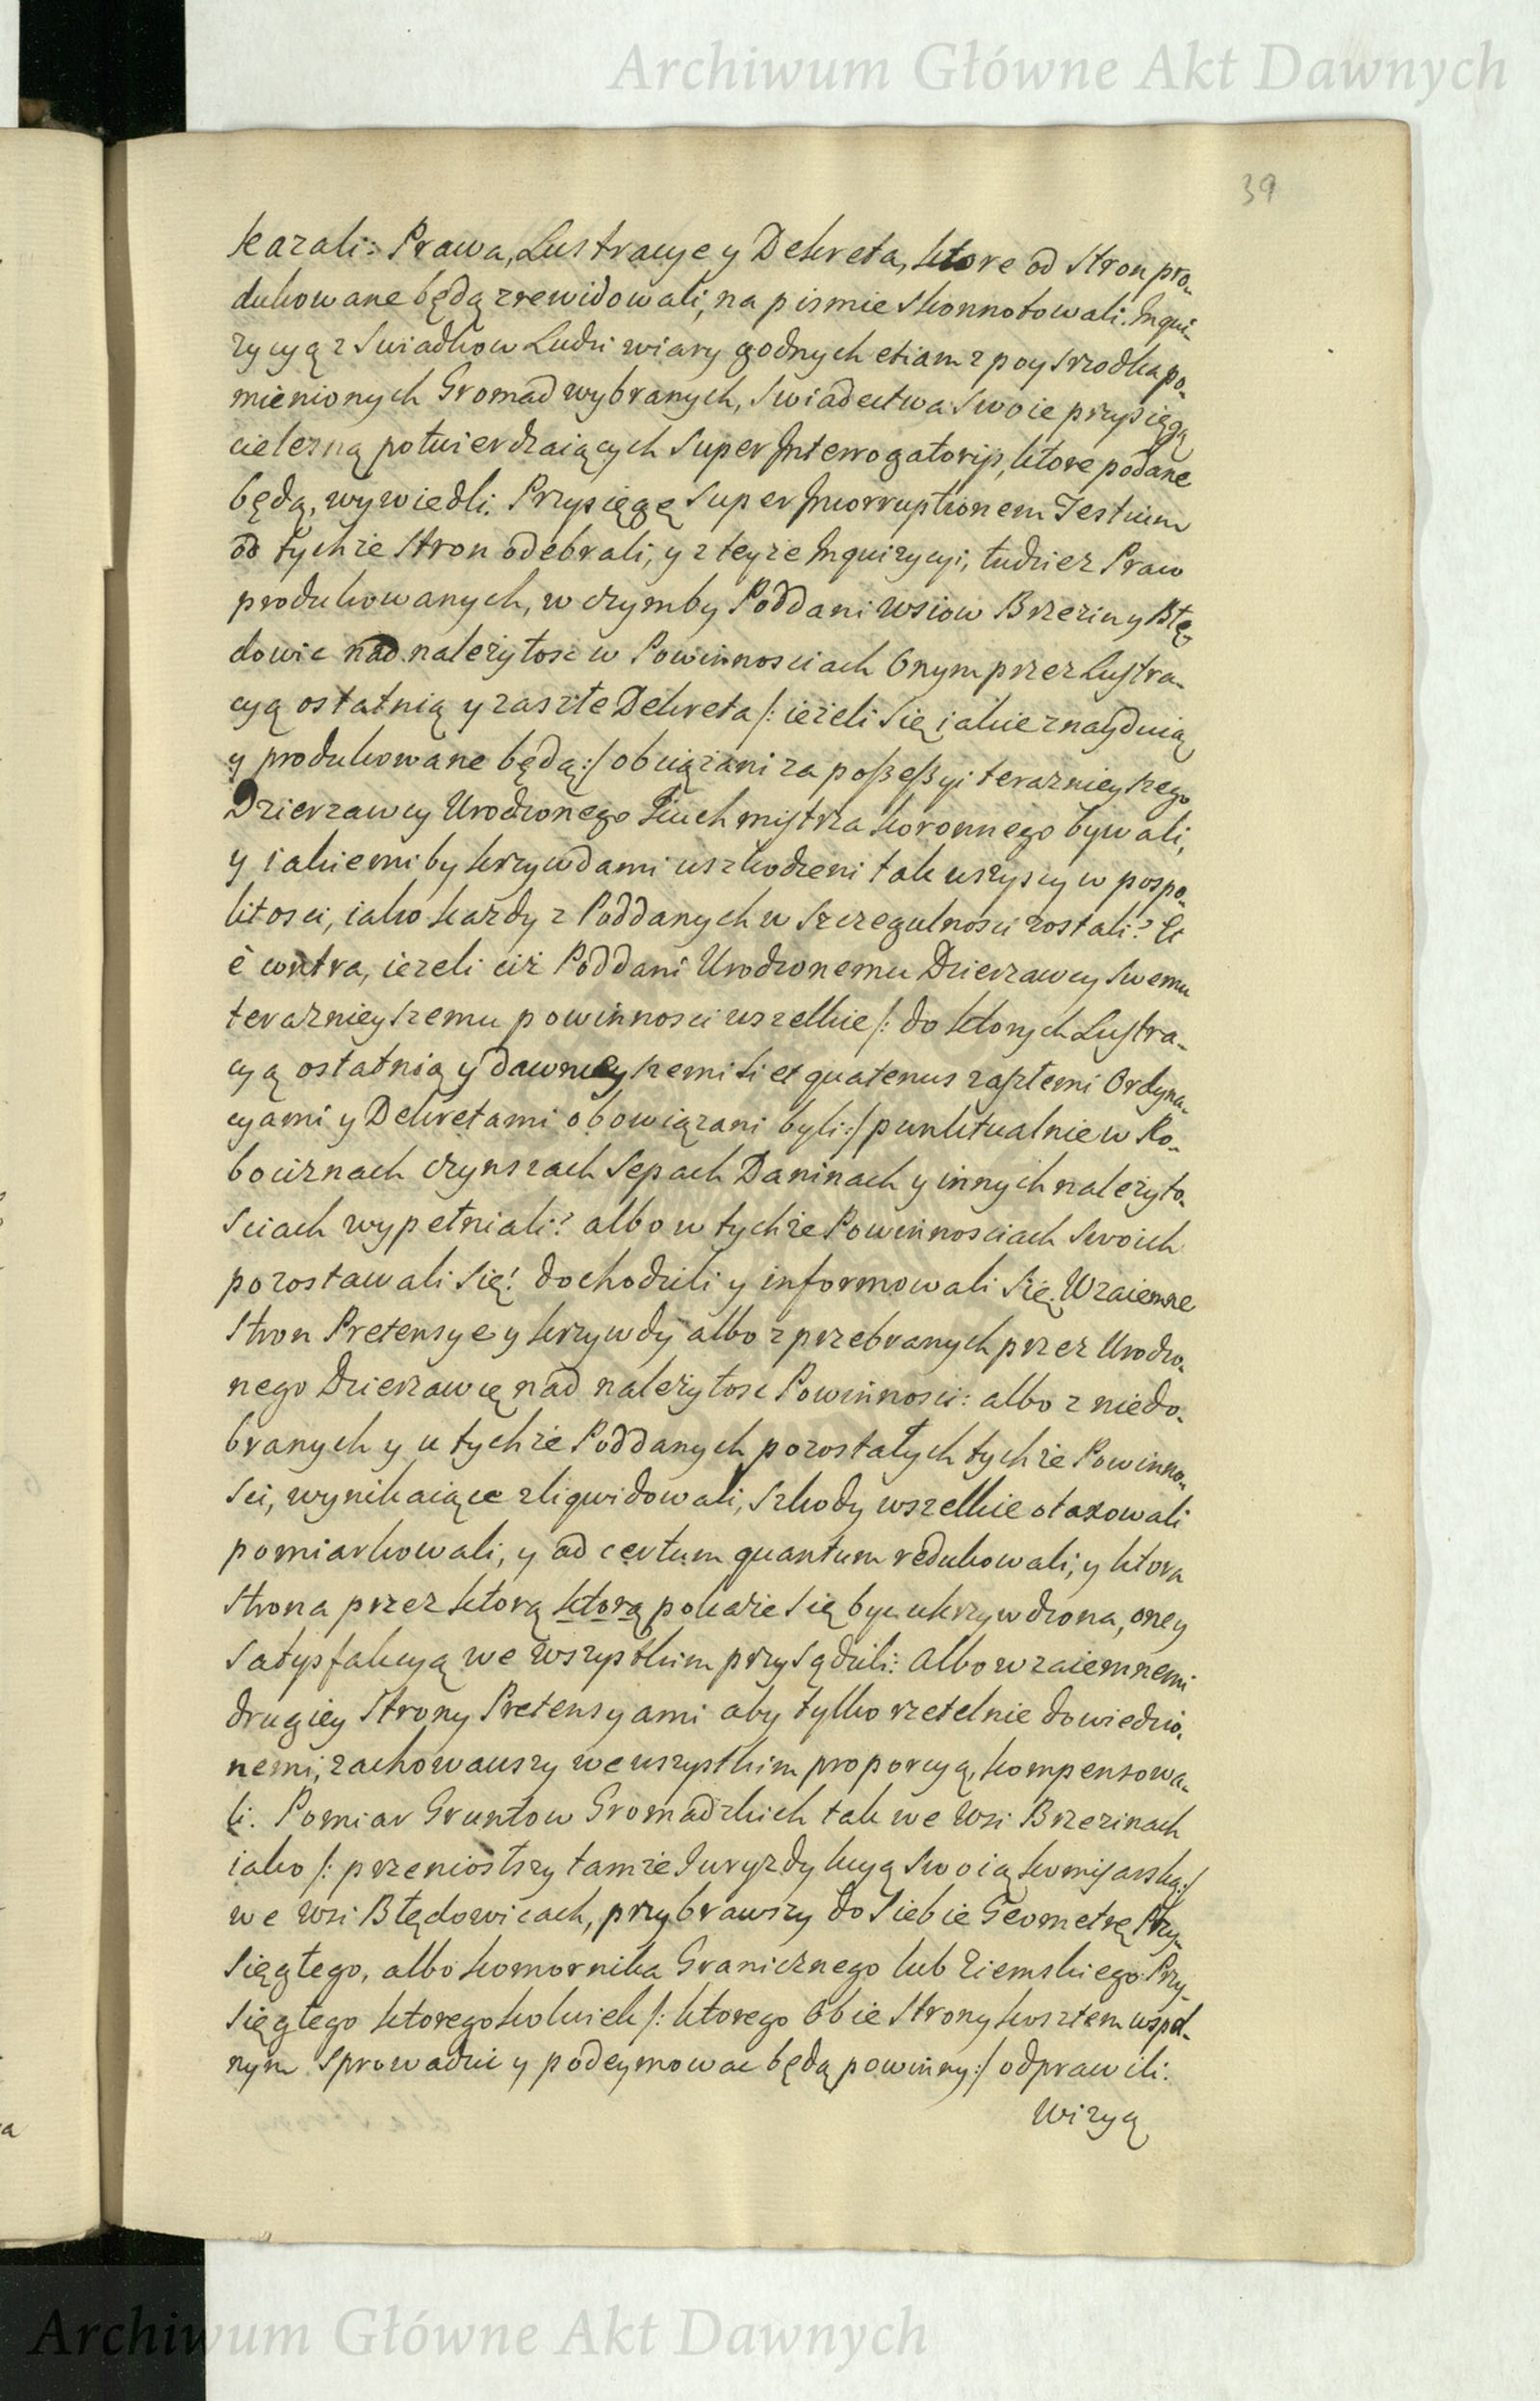 Archiwum Główne Akt Dawnych
39
kazali: Prawa, Lustracye y Dekreta, ktore od Stron pro-
dukowane będą zrewidowali, na pismie skonnotowali. Inqui-
zycyą z Swiadkow Ludzi wiary godnych etiam z poysrzodka po-
mienionych Gromad wybranych, Swiadectwa Swoie przysięgą
cielesną potwierdzaiących Super Interrogatorijs, ktore podane
będą, wywiedli. Przysięgę Super Incorruptionem Testium
od tychze Stron odebrali, y z teyze Inquizycyi, tudziez Praw
produkowanych, w czymby Poddani wsiow Brzeziny Błę-
dowic nad nalezytosc w Powinnosciach Onym przez Lustra-
cyą ostatnią y zaszłe Dekreta /: iezeli Się iakie znayduią
y produkowane będą :/ obciązani za possessyi teraznieyszego
Dzierzawcy Urodzonego Kuchmistrza koronnego bywali,
y iakiemi by krzywdami uszkodzeni tak wszyscy w pospo-
litosci, iako kazdy z Poddanych w Szczegulnosci zostali? Et
è contra, iezeli ciż Poddani Urodzonemu Dzierzawcy Swemu
teraznieyszemu powinnosci wszelkie /: do ktorych Lustra-
cyą ostatnią y dawnieyszemi si et quatenus zaszłemi Ordyna-
cyami y Dekretami obowiązani byli :/ punktualnie w Ro-
bociznach czynszach Sepach Daninach y innych nalezyto-
Sciach wypełniali? albo w tychze Powinnosciach Swoich
pozostawali Się! dochodzili y informowali Się. Wzaiemne
Stron Pretensye y krzywdy albo z przebranych przez Urodzo-
nego Dzierzawcę nad nalezytosc Powinnosci: albo z niedo-
branych y u tychze Poddanych pozostałych tychze Powinno-
Sci, wynikaiące zliqwidowali, Szkody wszelkie otaxowali
pomiarkowali, y ad certum quantum redukowali, y ktora
Strona przez ktorą ktorą pokaze Się byc ukrzywdzona, oney
Satysfakcyą we wszystkim przysądzili: albo wzaiemnemi
drugiey Strony Pretensyami aby tylko rzetelnie dowiedzio-
nemi, zachowawszy we wszystkim proporcyą, kompensowa-
li. Pomiar Gruntow Gromadzkich tak we wsi Brzezinach
iako /: przeniosłszy tamze Juryzdykcyą Swoią komisarską :/
we wsi Błędowicach, przybrawszy do Siebie Geometrę Przy-
Sięgłego, albo komornika Granicznego lub Ziemskiego Przy-
Sięgłego ktoregokolwiek /: ktorego Obie Strony kosztem wspol-
nym Sprowadzic y podeymowac będą powinny :/ odprawili.
Wizyą
Archiwum Główne Akt Dawnych